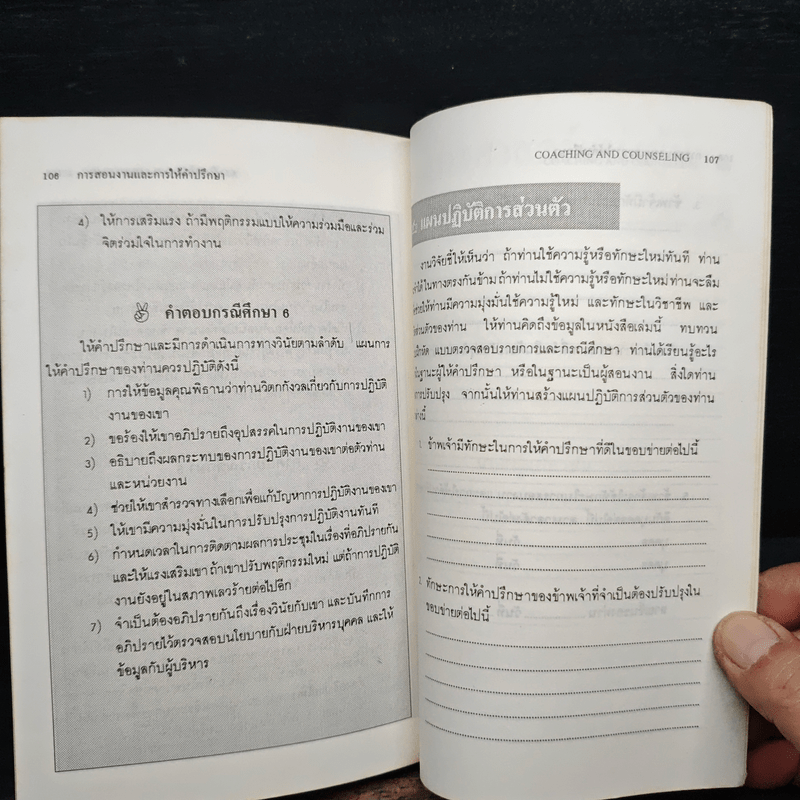 106 การสอนงานและการให้คำปรึกษา
4) ให้การเสริมแรง ถ้ามีพฤติกรรมแบบให้ความร่วมมือและร่วม
จิตร่วมใจในการทำงาน
คำตอบกรณีศึกษา 6
ให้คำปรึกษาและมีการดำเนินการทางวินัยตามลำดับ แผนการ
ให้คำปรึกษาของท่านควรปฏิบัติดังนี้
1) การให้ข้อมูลคุณพิธานว่าท่านวิตกกังวลเกี่ยวกับการปฏิบัติ
งานของเขา
2) ขอร้องให้เขาอภิปรายถึงอุปสรรคในการปฏิบัติงานของเขา
3) อธิบายถึงผลกระทบของการปฏิบัติงานของเขาต่อตัวท่าน
และหน่วยงาน
4) ช่วยให้เขาสำรวจทางเลือกเพื่อแก้ปัญหาการปฏิบัติงานของเขา
5) ให้เขามีความมุ่งมั่นในการปรับปรุงการปฏิบัติงานทันที
6) กำหนดเวลาในการติดตามผลการประชุมในเรื่องที่อภิปรายกัน
และให้แรงเสริมเขา ถ้าเขาปรับพฤติกรรมใหม่ แต่ถ้าการปฏิบัติ
งานยังอยู่ในสภาพเลวร้ายต่อไปอีก
7) จำเป็นต้องอภิปรายกันถึงเรื่องวินัยกับเขา และบันทึกการ
อภิปรายไว้ตรวจสอบนโยบายกับฝ่ายบริหารบุคคล และให้
ข้อมูลกับผู้บริหาร
COACHING AND COUNSELING 107
แผนปฏิบัติการส่วนตัว
งานวิจัยชี้ให้เห็นว่า ถ้าท่านใช้ความรู้หรือทักษะใหม่ทันที ท่าน
ได้ ในทางตรงกันข้าม ถ้าท่านไม่ใช้ความรู้หรือทักษะใหม่ท่านจะลืม
ให้ท่านมีความมุ่งมั่นใช้ความรู้ใหม่ และทักษะในวิชาชีพ และ
ตัวของท่าน ให้ท่านคิดถึงข้อมูลในหนังสือเล่มนี้ ทบทวน
แบบตรวจสอบรายการและกรณีศึกษา ท่านได้เรียนรู้อะไร
ฐานะผู้ให้คำปรึกษา หรือในฐานะเป็นผู้สอนงาน สิ่งใดท่าน
การปรับปรุง จากนั้นให้ท่านสร้างแผนปฏิบัติการส่วนตัวของท่าน
นี้
ข้าพเจ้ามีทักษะในการให้คำปรึกษาที่ดีในขอบข่ายต่อไปนี้
ทักษะการให้คำปรึกษาของข้าพเจ้าที่จำเป็นต้องปรับปรุงใน
ขอบข่ายต่อไปนี้